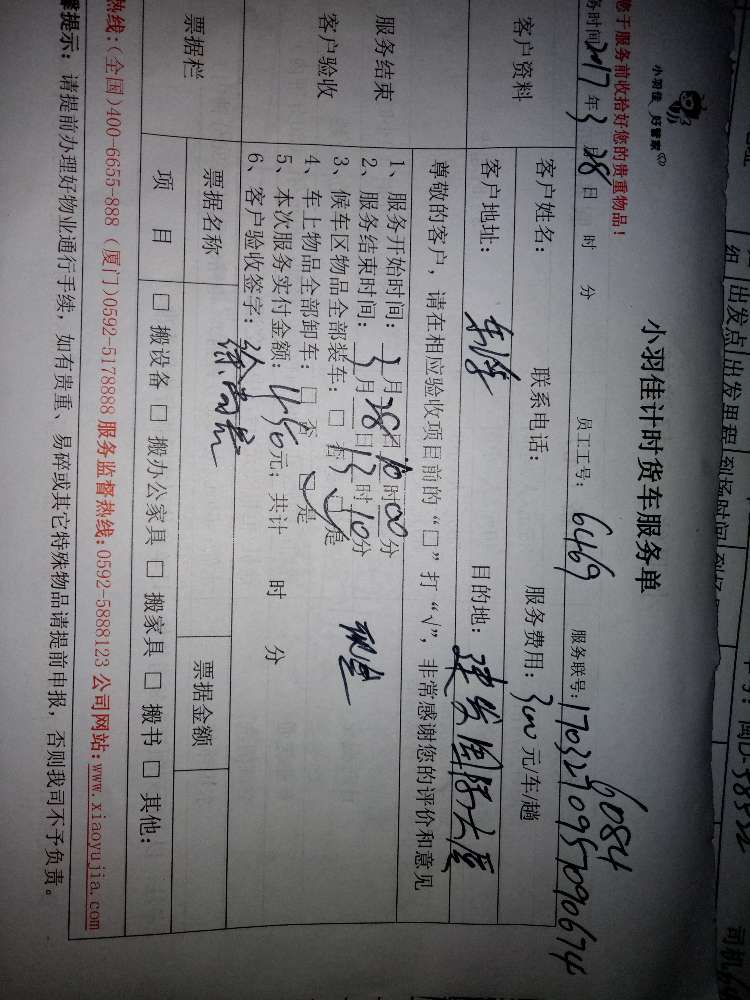 小羽佳 好管家
小羽佳计时货车服务单
您于服务前收拾好您的贵重物品！
务时间2017年3月28日 时 分 员工工号：6469 服务联号：1703270957090674
6084
客户资料
客户姓名： 联系电话： 服务费用：300元/车/趟
客户地址： 目的地：建发国际大厦
服务结束
客户验收
尊敬的客户，请在相应验收项目前的“□”打“√”，非常感谢您的评价和意见
1、服务开始时间：3月28日10时00分
2、服务结束时间：3月28日13时10分
3、候车区物品全部装车：□ 否 □ 是
4、车上物品全部卸车：□ 否 □ 是
5、本次服务实付金额：450元；共计 时 分
6、客户验收签字：
票据栏
票据名称 票据金额
项 目 □ 搬设备 □ 搬办公家具 □ 搬家具 □ 搬书 □ 其他：
热线：(全国)400-6655-888 (厦门)0592-5178888 服务监督热线：0592-5888123 公司网站：www.xiaoyujia.com
提示：请提前办理好物业通行手续，如有贵重、易碎或其它特殊物品请提前申报，否则我司不予负责。
组 出发点 出发里程 到场时间
司机